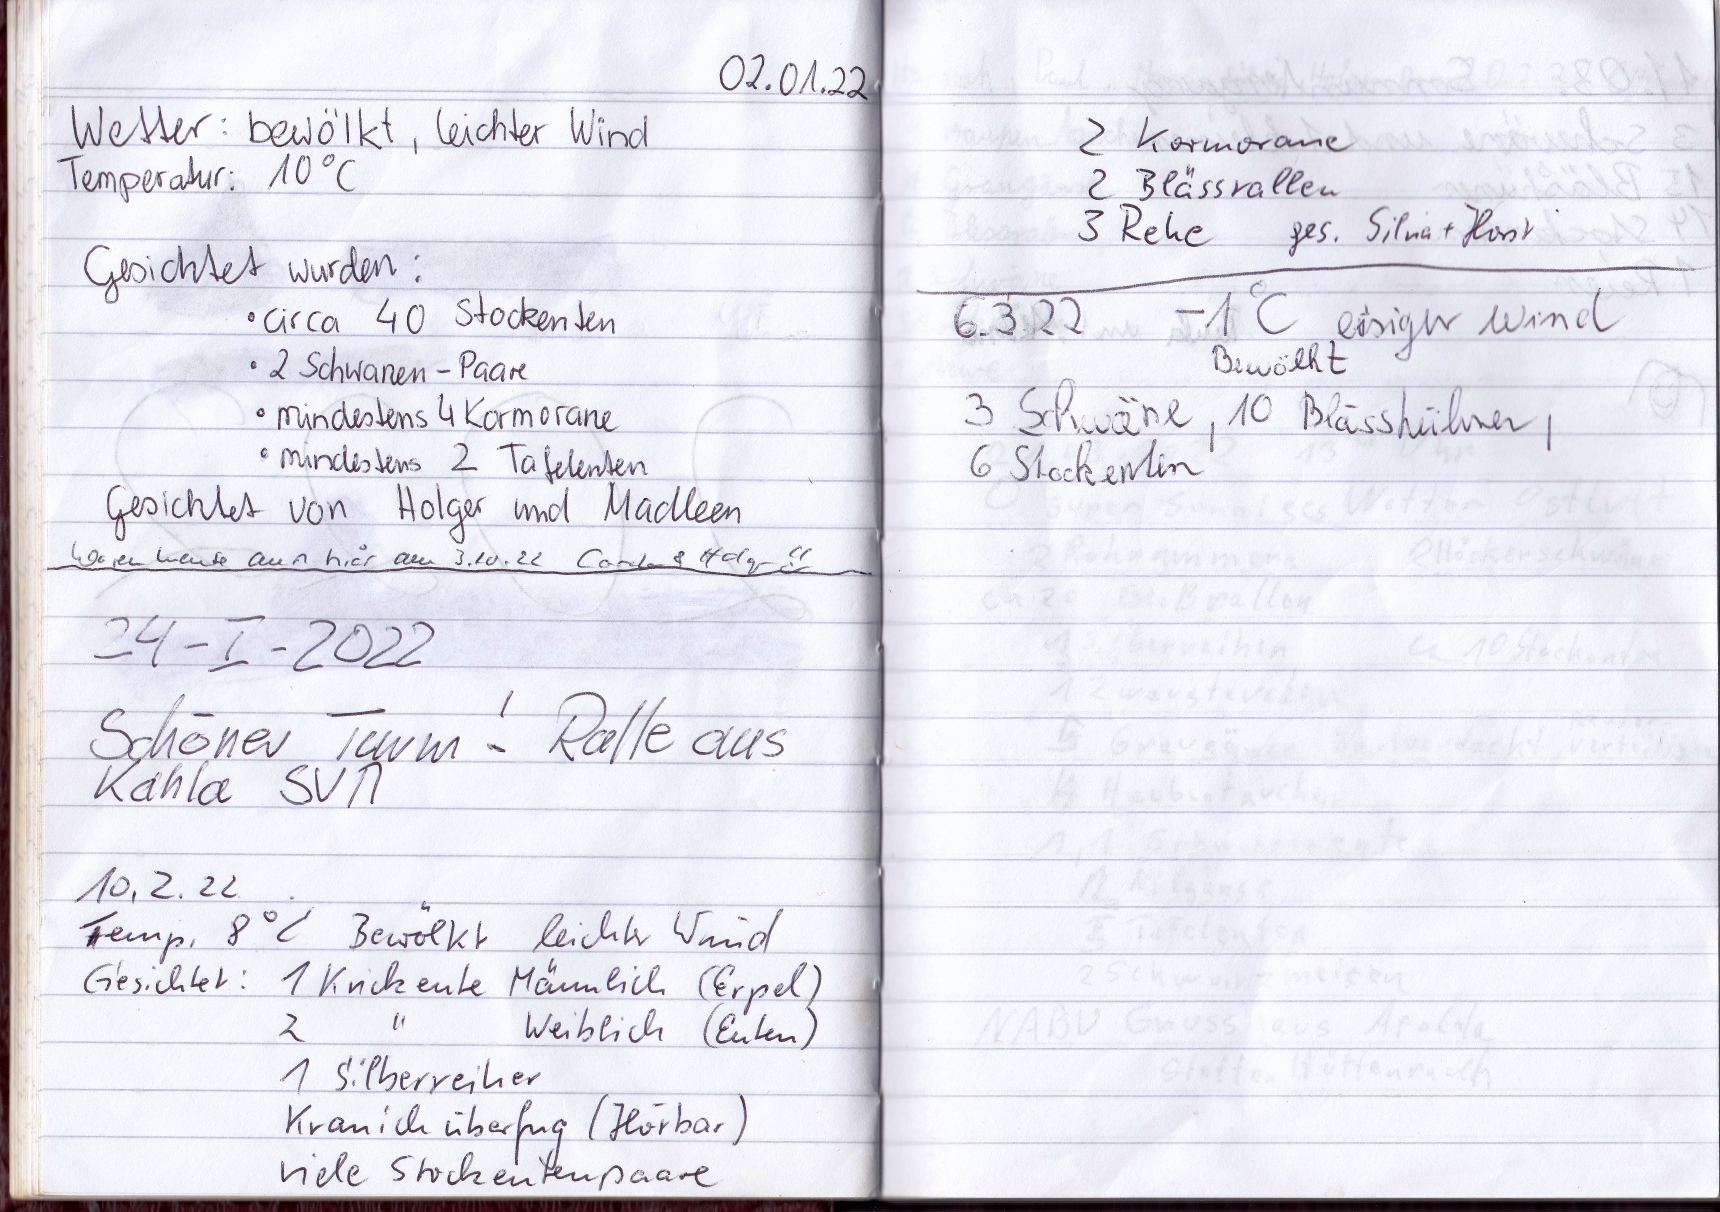 02.01.22
Wetter: bewölkt, leichter Wind
Temperatur: 10°C
Gesichtet wurden:
• circa 40 Stockenten
• 2 Schwanen-Paare
• mindestens 4 Kormorane
• mindestens 2 Tafelenten
Gesichtet von Holger und Madleen
heute auch hier am 3.10.22 &
24-I-2022
Schöner Turm! Ralle aus
Kahla SVN
10.2.22
Temp. 8°C Bewölkt leichter Wind
Gesichtet: 1 Krickente Männlich (Erpel)
2 " Weiblich (Enten)
1 Silberreiher
Kranich überfug (Hörbar)
viele Stockentenpaare
2 Kormorane
2 Blässrallen
3 Rehe ges. Silvia + Horst
6.3.22 -1°C eisiger Wind
Bewölkt
3 Schwäne, 10 Blässhühner,
6 Stockenten